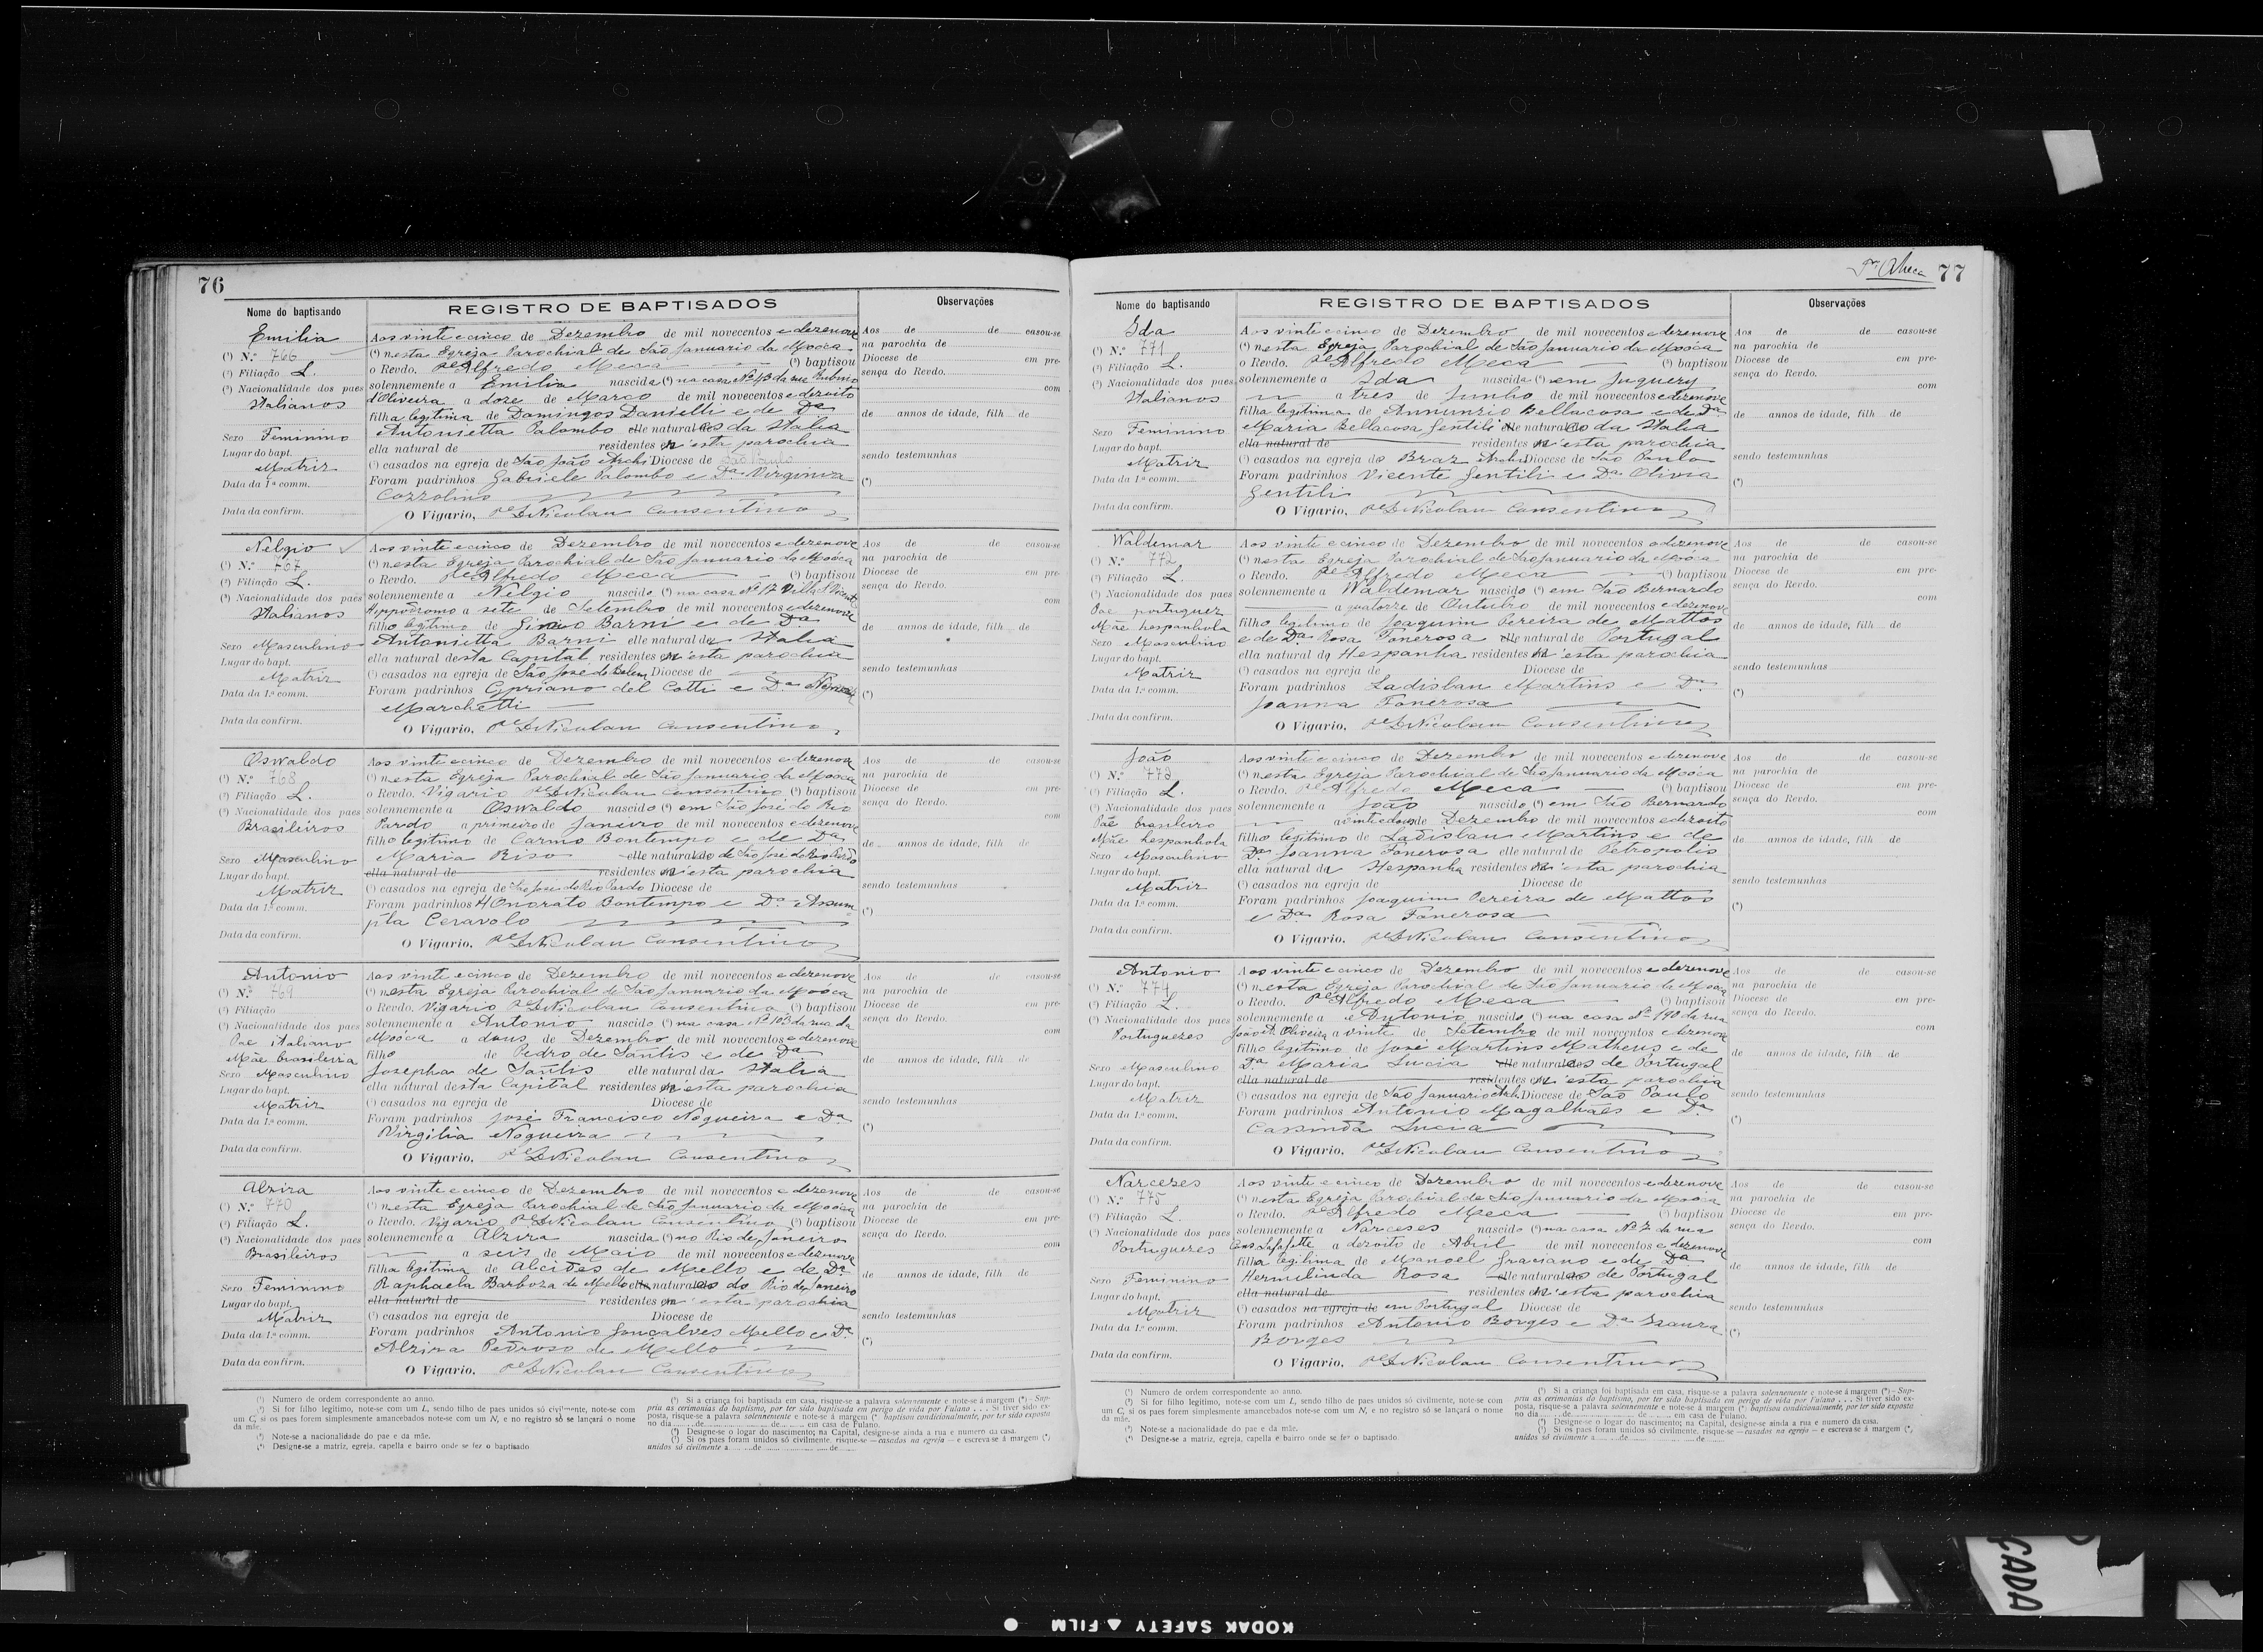 76
Nome do baptisando
REGISTRO DE BAPTISADOS
Observações
Emilia
(¹) N.º 766
(²) Filiação L.
(³) Nacionalidade dos paes
Italianos
Sexo Feminino
Lugar do bapt.
Matriz
Data da 1.ª comm.
Data da confirm.
Aos vinte e cinco de Dezembro de mil novecentos e dezenove
(⁴) nesta Egreja Parochial de São Januario da Moóca
o Revdo. Pe Alfredo Meca (⁵) baptisou
solennemente a Emilia nascida (⁶) na casa Nº 43 da rua Rubino
d'Oliveira a doze de Março de mil novecentos e dezoito
filha legitima de Domingos Danielli e de Da
Antonietta Palombo elle naturaes da Italia
ella natural de residentes n'esta parochia
(⁷) casados na egreja de São João Archi Diocese de São Paulo
Foram padrinhos Gabriele Palombo e Da Virginia
Cozzolino
O Vigario, Pe De Nicolau Consentino
Aos de de casou-se
na parochia de
Diocese de em pre-
sença do Revdo.
com
de annos de idade, filh de
sendo testemunhas
(*)
Nelgio
(¹) N.º 767
(²) Filiação L.
(³) Nacionalidade dos paes
Italianos
Sexo Masculino
Lugar do bapt.
Matriz
Data da 1.ª comm.
Data da confirm.
Aos vinte e cinco de Dezembro de mil novecentos e dezenove
(⁴) nesta Egreja Parochial de São Januario da Moóca
o Revdo. Pe Alfredo Meca (⁵) baptisou
solennemente a Nelgio nascido (⁶) na casa Nº 17 Villa S. Vicente
Hippódromo a sete de Setembro de mil novecentos e dezenove
filho legitimo de Barni e de Da
Antonietta Barni elle natural da Italia
ella natural desta Capital residentes n'esta parochia
(⁷) casados na egreja de São José do Belem Diocese de
Foram padrinhos Cypriano del Cotti e Da
Marchetti
O Vigario, Pe De Nicolau Consentino
Aos de de casou-se
na parochia de
Diocese de em pre-
sença do Revdo.
com
de annos de idade, filh de
sendo testemunhas
(*)
Oswaldo
(¹) N.º 768
(²) Filiação L.
(³) Nacionalidade dos paes
Brasileiros
Sexo Masculino
Lugar do bapt.
Matriz
Data da 1.ª comm.
Data da confirm.
Aos vinte e cinco de Dezembro de mil novecentos e dezenove
(⁴) nesta Egreja Parochial de São Januario da Moóca
o Revdo. Vigario Pe De Nicolau Consentino (⁵) baptisou
solennemente a Oswaldo nascido (⁶) em São José do Rio
Pardo a primeiro de Janeiro de mil novecentos e dezenove
filho legitimo de Carmo Bontempo e de Da
Maria Riso elle naturaes de São José do Rio Pardo
ella natural de residentes n'esta parochia
(⁷) casados na egreja de São José do Rio Pardo Diocese de
Foram padrinhos HOnorato Bontempo e Da Assum
pta Ceravolo
O Vigario, Pe De Nicolau Consentino
Aos de de casou-se
na parochia de
Diocese de em pre-
sença do Revdo.
com
de annos de idade, filh de
sendo testemunhas
(*)
Antonio
(¹) N.º 769
(²) Filiação
(³) Nacionalidade dos paes
Pae italiano
Mãe brasileira
Sexo Masculino
Lugar do bapt.
Matriz
Data da 1.ª comm.
Data da confirm.
Aos vinte e cinco de Dezembro de mil novecentos e dezenove
(⁴) nesta Egreja Parochial de São Januario da Moóca
o Revdo. Vigario Pe De Nicolau Consentino (⁵) baptisou
solennemente a Antonio nascido (⁶) na casa Nº 103 da rua da
Moóca a dous de Dezembro de mil novecentos e dezenove
filho de Pedro de Santis e de Da
Josepha de Santis elle natural da Italia
ella natural desta Capital residentes n'esta parochia
(⁷) casados na egreja de Diocese de
Foram padrinhos José Francisco Nogueira e Da
Virgilia Nogueira
O Vigario, Pe De Nicolau Consentino
Aos de de casou-se
na parochia de
Diocese de em pre-
sença do Revdo.
com
de annos de idade, filh de
sendo testemunhas
(*)
Alzira
(¹) N.º 770
(²) Filiação L.
(³) Nacionalidade dos paes
Brasileiros
Sexo Feminino
Lugar do bapt.
Matriz
Data da 1.ª comm.
Data da confirm.
Aos vinte e cinco de Dezembro de mil novecentos e dezenove
(⁴) nesta Egreja Parochial de São Januario da Moóca
o Revdo. Vigario Pe De Nicolau Consentino (⁵) baptisou
solennemente a Alzira nascida (⁶) no Rio de Janeiro
a seis de Maio de mil novecentos e dezenove
filha legitima de Alcides de Mello e de Da
Raphaela Barboza de Mello elle naturaes do Rio de Janeiro
ella natural de residentes n'esta parochia
(⁷) casados na egreja de Diocese de
Foram padrinhos Antonio Gonçalves Mello e Da
Alzira Pedroso de Mello
O Vigario, Pe De Nicolau Consentino
Aos de de casou-se
na parochia de
Diocese de em pre-
sença do Revdo.
com
de annos de idade, filh de
sendo testemunhas
(*)
(¹) Numero de ordem correspondente ao anno.
(²) Si for filho legitimo, note-se com um L, sendo filho de paes unidos só civilmente, note-se com
um C, si os paes forem simplesmente amancebados note-se com um N, e no registro só se lançará o nome
da mãe.
(³) Note-se a nacionalidade do pae e da mãe.
(⁴) Designe-se a matriz, egreja, capella e bairro onde se fez o baptisado
(⁵) Si a criança foi baptisada em casa, risque-se a palavra solennemente e note-se á margem (*) - Sup-
priu as cerimonias do baptismo, por ter sido baptisada em perigo de vida por Fulano . . . Si tiver sido ex-
posta, risque-se a palavra solennemente e note-se á margem (*) baptisou condicionalmente, por ter sido exposto
no dia de de em casa de Fulano.
(⁶) Designe-se o logar do nascimento; na Capital, designe-se ainda a rua e numero da casa.
(⁷) Si os paes foram unidos só civilmente, risque-se — casados na egreja — e escreva-se á margem (*)
unidos só civilmente a de de
77
Nome do baptisando
REGISTRO DE BAPTISADOS
Observações
Ida
(¹) N.º 771
(²) Filiação L.
(³) Nacionalidade dos paes
Italianos
Sexo Feminino
Lugar do bapt.
Matriz
Data da 1.ª comm.
Data da confirm.
Aos vinte e cinco de Dezembro de mil novecentos e dezenove
(⁴) nesta Egreja Parochial de São Januario da Moóca
o Revdo. Pe Alfredo Meca (⁵) baptisou
solennemente a Ida nascida (⁶) em Juquery
a tres de Junho de mil novecentos e dezenove
filha legitima de Annunzio Bellacosa e de Da
Maria Bellacosa Gentili elle naturaes da Italia
ella natural de residentes n'esta parochia
(⁷) casados na egreja do Braz Archi Diocese de São Paulo
Foram padrinhos Vicente Gentili e Da Olivia
Gentili
O Vigario, Pe De Nicolau Consentino
Aos de de casou-se
na parochia de
Diocese de em pre-
sença do Revdo.
com
de annos de idade, filh de
sendo testemunhas
(*)
Waldemar
(¹) N.º 772
(²) Filiação L.
(³) Nacionalidade dos paes
Pae portuguez
Mãe hespanhola
Sexo Masculino
Lugar do bapt.
Matriz
Data da 1.ª comm.
Data da confirm.
Aos vinte e cinco de Dezembro de mil novecentos e dezenove
(⁴) nesta Egreja Parochial de São Januario da Moóca
o Revdo. Pe Alfredo Meca (⁵) baptisou
solennemente a Waldemar nascido (⁶) em São Bernardo
a quatorze de Outubro de mil novecentos e dezenove
filho legitimo de Joaquim Pereira de Mattos
e de Da Rosa Fanerosa elle natural de Portugal
ella natural da Hespanha residentes n'esta parochia
(⁷) casados na egreja de Diocese de
Foram padrinhos Ladislau Martins e Da
Joanna Fanerosa
O Vigario, Pe De Nicolau Consentino
Aos de de casou-se
na parochia de
Diocese de em pre-
sença do Revdo.
com
de annos de idade, filh de
sendo testemunhas
(*)
João
(¹) N.º 773
(²) Filiação L.
(³) Nacionalidade dos paes
Pae brasileiro
Mãe hespanhola
Sexo Masculino
Lugar do bapt.
Matriz
Data da 1.ª comm.
Data da confirm.
Aos vinte e cinco de Dezembro de mil novecentos e dezenove
(⁴) nesta Egreja Parochial de São Januario da Moóca
o Revdo. Pe Alfredo Meca (⁵) baptisou
solennemente a João nascido (⁶) em São Bernardo
a vinte e dous de Dezembro de mil novecentos e dezoito
filho legitimo de Ladislau Martins e de
Da Joanna Fanerosa elle natural de Petropolis
ella natural da Hespanha residentes n'esta parochia
(⁷) casados na egreja de Diocese de
Foram padrinhos Joaquim Pereira de Mattos
e Da Rosa Fanerosa
O Vigario, Pe De Nicolau Consentino
Aos de de casou-se
na parochia de
Diocese de em pre-
sença do Revdo.
com
de annos de idade, filh de
sendo testemunhas
(*)
Antonio
(¹) N.º 774
(²) Filiação L.
(³) Nacionalidade dos paes
Portuguezes
Sexo Masculino
Lugar do bapt.
Matriz
Data da 1.ª comm.
Data da confirm.
Aos vinte e cinco de Dezembro de mil novecentos e dezenove
(⁴) nesta Egreja Parochial de São Januario da Moóca
o Revdo. Pe Alfredo Meca (⁵) baptisou
solennemente a Antonio nascido (⁶) na casa Nº 190 da rua
Oliveira a vinte de Setembro de mil novecentos e dezenove
filho legitimo de José Martins Matheus e de
Da Maria Lucia elle naturaes de Portugal
ella natural de residentes n'esta parochia
(⁷) casados na egreja de São Januario Arch. Diocese de São Paulo
Foram padrinhos Antonio Magalhães e Da
Lucia
O Vigario, Pe De Nicolau Consentino
Aos de de casou-se
na parochia de
Diocese de em pre-
sença do Revdo.
com
de annos de idade, filh de
sendo testemunhas
(*)
Narceses
(¹) N.º 775
(²) Filiação L.
(³) Nacionalidade dos paes
Portuguezes
Sexo Feminino
Lugar do bapt.
Matriz
Data da 1.ª comm.
Data da confirm.
Aos vinte e cinco de Dezembro de mil novecentos e dezenove
(⁴) nesta Egreja Parochial de São Januario da Moóca
o Revdo. Pe Alfredo Meca (⁵) baptisou
solennemente a Narceses nascido (⁶) na casa Nº 7 da rua
Cons Lafafette a dezoito de Abril de mil novecentos e dezenove
filha legitima de Manoel Graciano e de Da
Hermilinda Rosa elle naturaes de Portugal
ella natural de residentes n'esta parochia
(⁷) casados na egreja de em Portugal Diocese de
Foram padrinhos Antonio Borges e Da Izaura
Borges
O Vigario, Pe De Nicolau Consentino
Aos de de casou-se
na parochia de
Diocese de em pre-
sença do Revdo.
com
de annos de idade, filh de
sendo testemunhas
(*)
(¹) Numero de ordem correspondente ao anno.
(²) Si for filho legitimo, note-se com um L, sendo filho de paes unidos só civilmente, note-se com
um C, si os paes forem simplesmente amancebados note-se com um N, e no registro só se lançará o nome
da mãe.
(³) Note-se a nacionalidade do pae e da mãe.
(⁴) Designe-se a matriz, egreja, capella e bairro onde se fez o baptisado
(⁵) Si a criança foi baptisada em casa, risque-se a palavra solennemente e note-se á margem (*) - Sup-
priu as cerimonias do baptismo, por ter sido baptisada em perigo de vida por Fulano . . . Si tiver sido ex-
posta, risque-se a palavra solennemente e note-se á margem (*) baptisou condicionalmente, por ter sido exposto
no dia de de em casa de Fulano.
(⁶) Designe-se o logar do nascimento; na Capital, designe-se ainda a rua e numero da casa.
(⁷) Si os paes foram unidos só civilmente, risque-se — casados na egreja — e escreva-se á margem (*)
unidos só civilmente a de de
CADA
KODAK SAFETY ▲ FILM